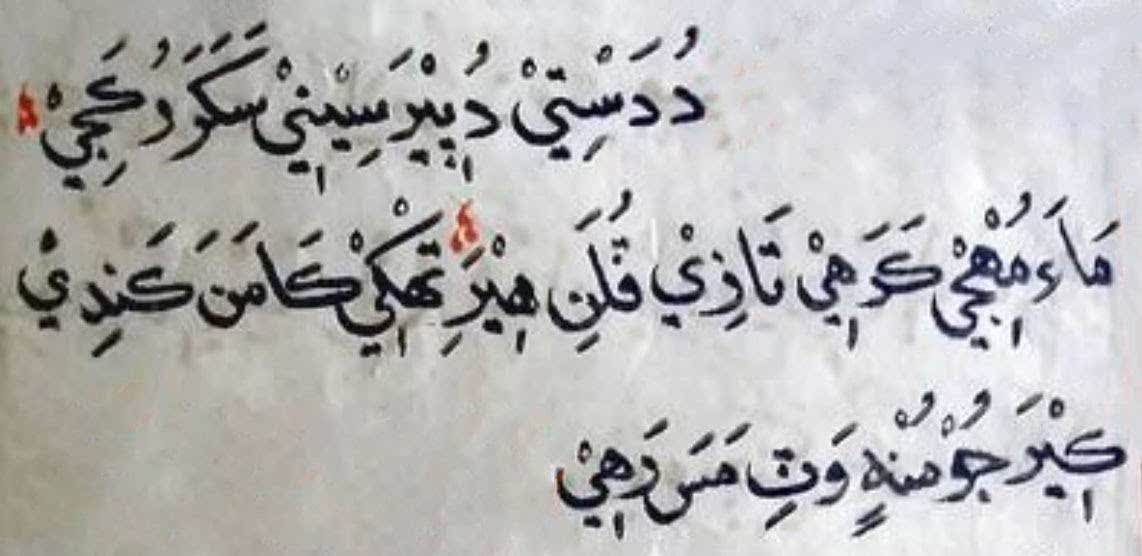 دُدَسْتِيْ دُبِيْرَ سِيْنِيْ سَكَوَ دُكَجِيْ
مَاَءِ مُهْجِيْ كَرَهِيْ تَازِيْ قُلَنِ هِيْرَ تَهكِيْ كَامَنَ كَندِيْ
كِيْرَ جُوْ مُنْهٍ وَتِ مَسَ رَهِيْ